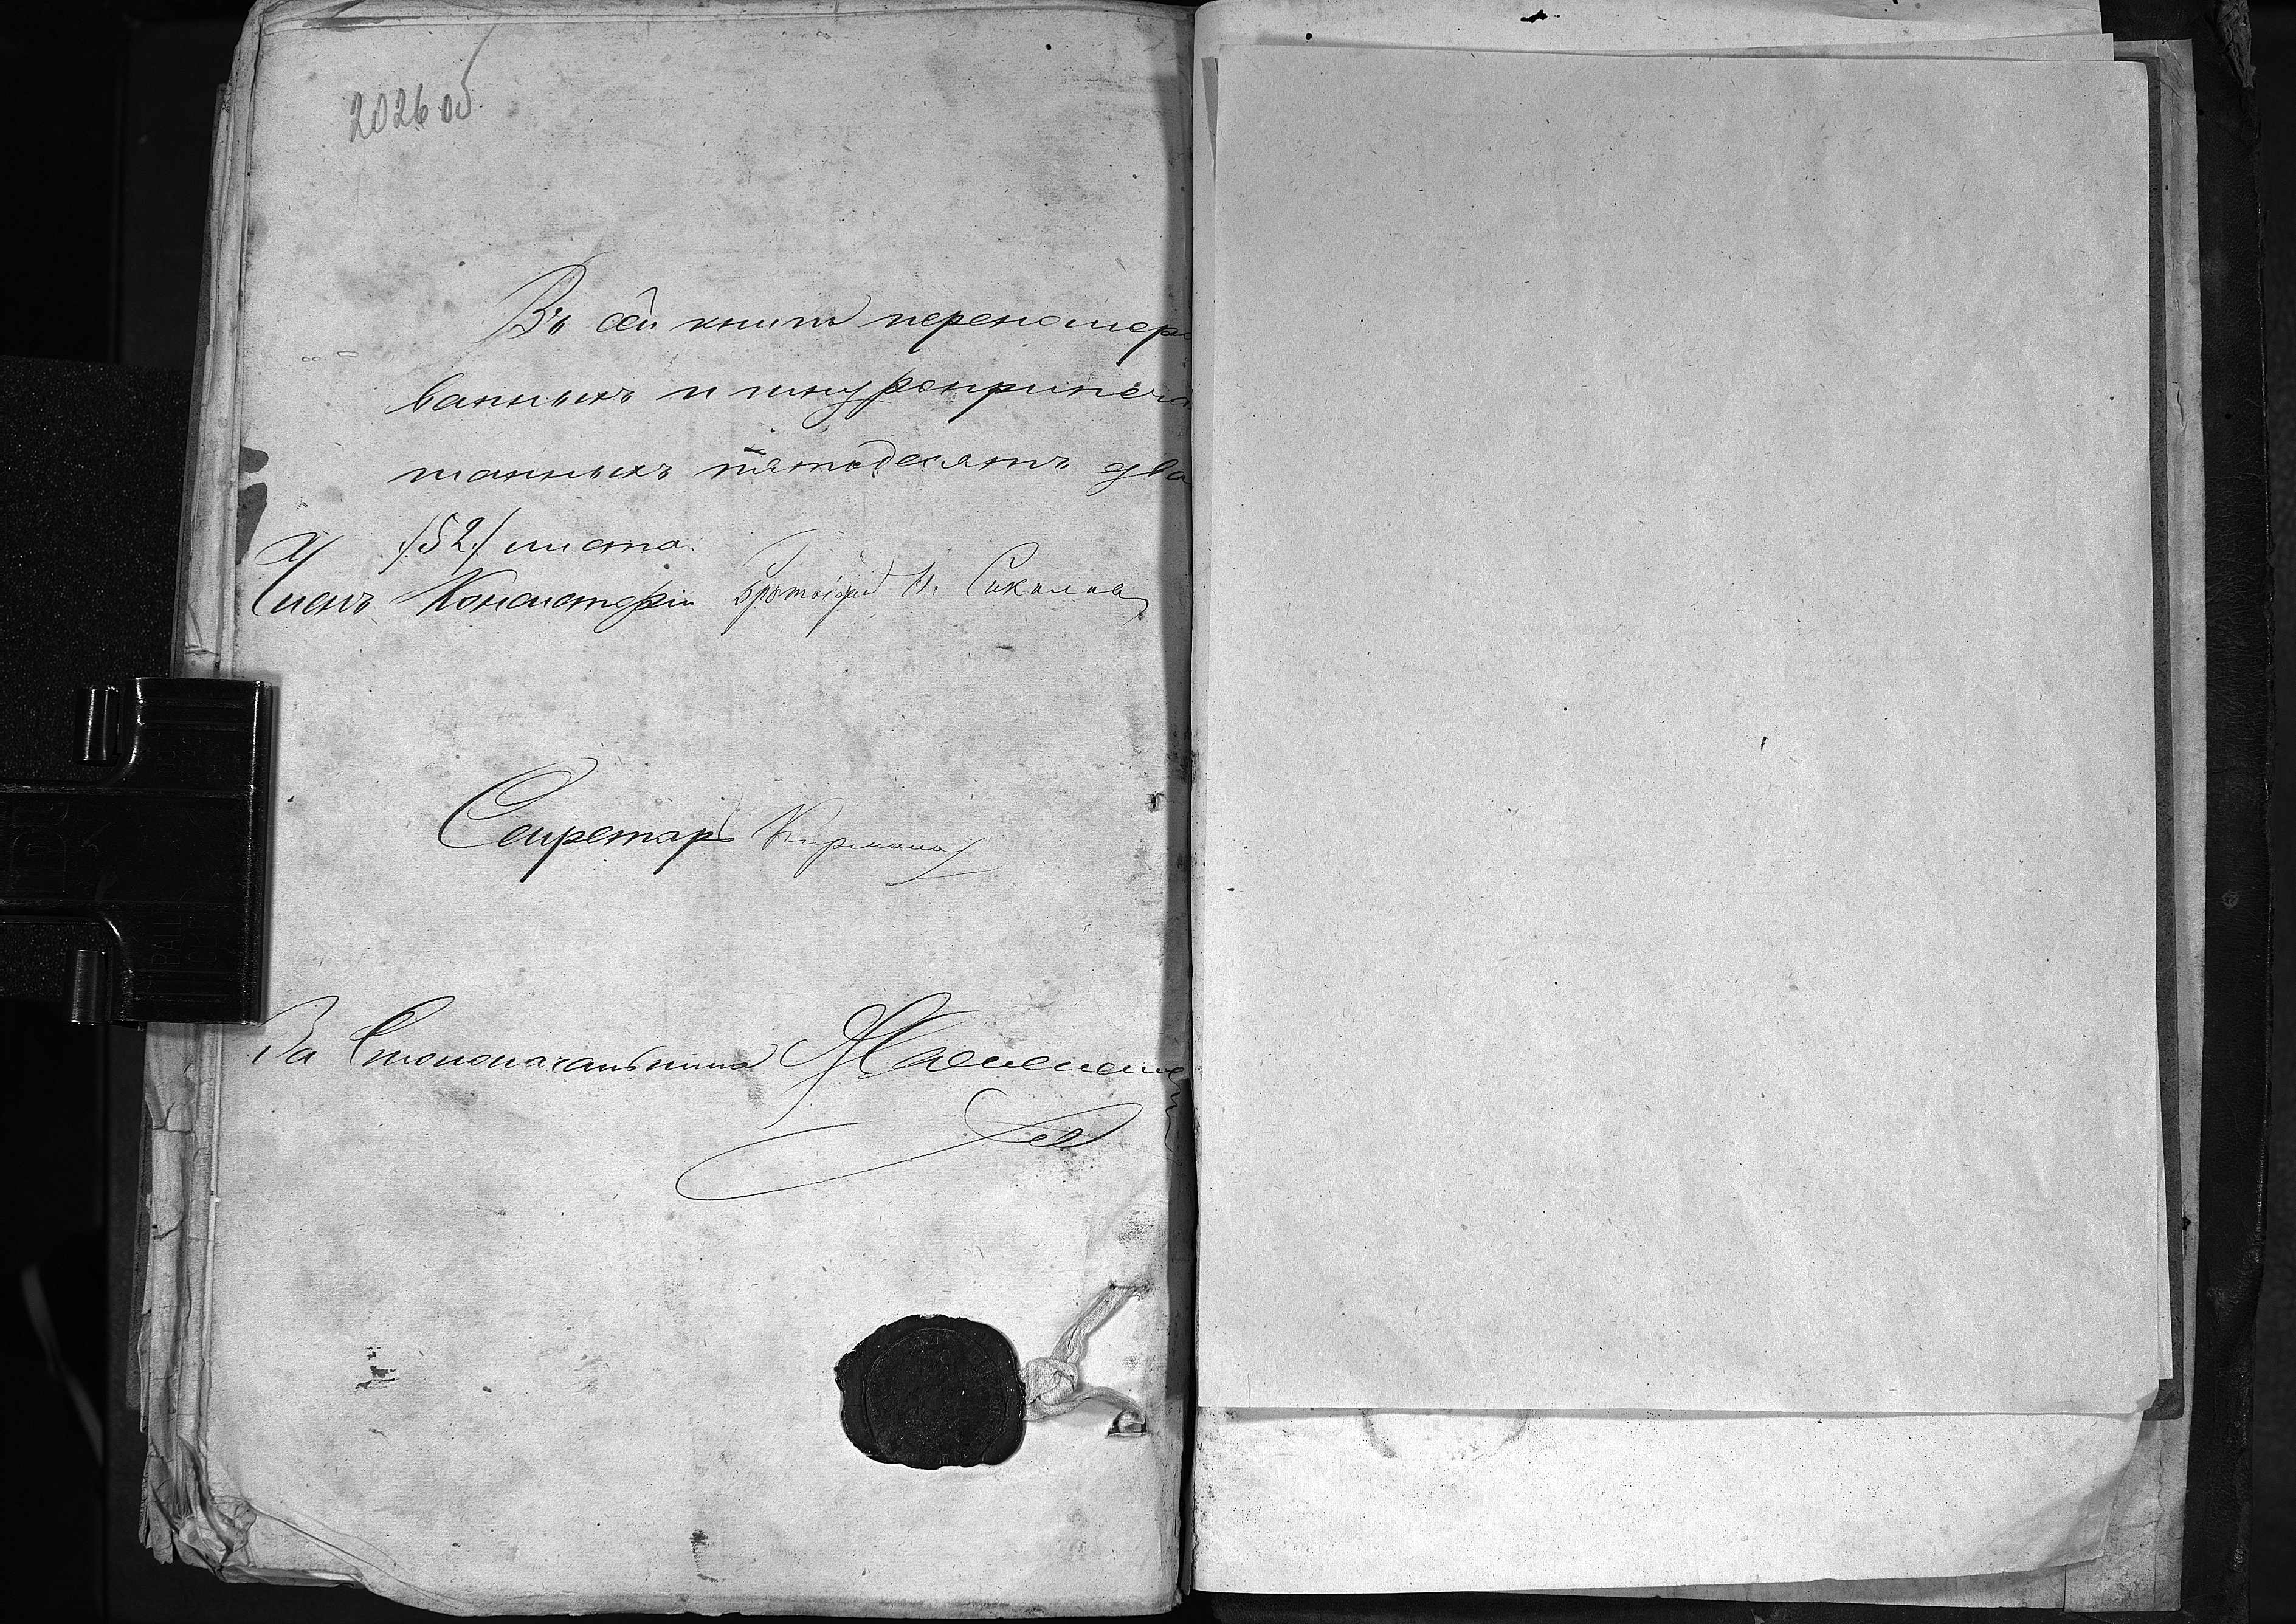 2026 об
Въ сей книгѣ переномеро
ванныхъ и шнуроприпеча
танныхъ пятьдесятъ два
/52/ листа.
Членъ Консисторіи Протоіерей Н. Соколовъ
Секретарь
За Столоначальника